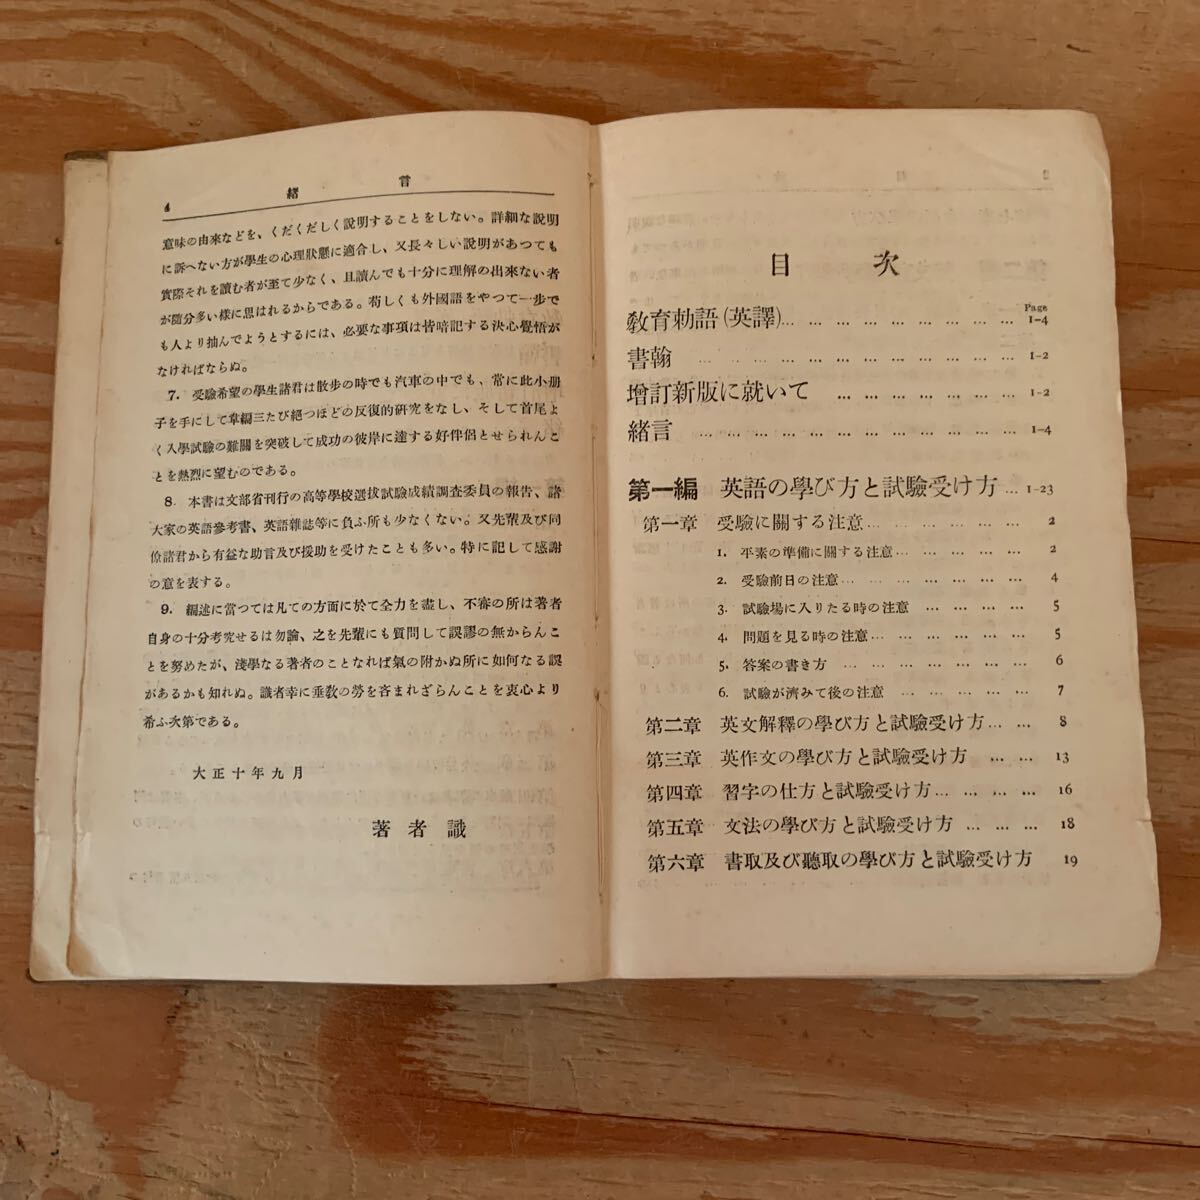 4 緒言
意味の由來などを、くだくだしく説明することをしない。詳細な説明
に訴へない方が學生の心理狀態に適合し、又長々しい説明があつても
實際それを讀む者が至て少なく、且讀んでも十分に理解の出來ない者
が隨分多い樣に思はれるからである。苟しくも外國語をやつて一步で
も人より抽んでようとするには、必要な事項は皆暗記する決心覺悟が
なければならぬ。
7. 受驗希望の學生諸君は散步の時でも汽車の中でも、常に此小册
子を手にして韋編三たび絕つほどの反復的硏究をなし、そして首尾よ
く入學試驗の難關を突破して成功の彼岸に達する好伴侶とせられんこ
とを熱烈に望むのである。
8. 本書は文部省刊行の高等學校選拔試驗成績調査委員の報告、諸
大家の英語參考書、英語雜誌等に負ふ所も少なくない。又先輩及び同
僚諸君から有益な助言及び援助を受けたことも多い。特に記して感謝
の意を表する。
9. 編述に當つては凡ての方面に於て全力を盡し、不審の所は著者
自身の十分考究せるは勿論、之を先輩にも質問して誤謬の無からんこ
とを努めたが、淺學なる著者のことなれば氣の附かぬ所に如何なる誤
があるかも知れぬ。識者幸に垂敎の勞を吝まれざらんことを衷心より
希ふ次第である。
大正十年九月
著者識
目次
Page
敎育勅語(英譯)... ... ... ... ... ... ... ... ... 1-4
書翰 ... ... ... ... ... ... ... ... ... ... ... 1-2
增訂新版に就いて ... ... ... ... ... ... ... 1-2
緖言 ... ... ... ... ... ... ... ... ... ... ... 1-4
第一編 英語の學び方と試驗受け方 ... 1-23
第一章 受驗に關する注意... ... ... ... ... 2
1. 平素の準備に關する注意... ... ... ... ... 2
2. 受驗前日の注意... ... ... ... ... ... ... 4
3. 試驗場に入りたる時の注意 ... ... ... ... 5
4. 問題を見る時の注意... ... ... ... ... ... 5
5. 答案の書き方 ... ... ... ... ... ... ... 6
6. 試驗が濟みて後の注意 ... ... ... ... ... 7
第二章 英文解釋の學び方と試驗受け方... ... 8
第三章 英作文の學び方と試驗受け方 ... ... 13
第四章 習字の仕方と試驗受け方... ... ... ... 16
第五章 文法の學び方と試驗受け方 ... ... ... 18
第六章 書取及び聽取の學び方と試驗受け方 19